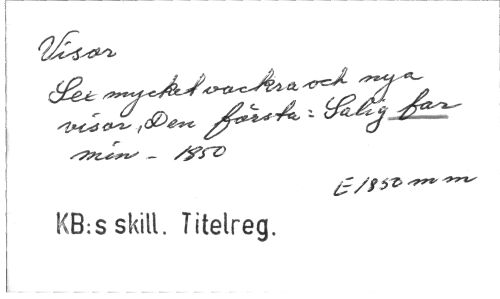 Visor
Sex mycket vackra och nya
visor, Den första: Salig far
min - 1850
E 1850 m m
KB:s skill. Titelreg.